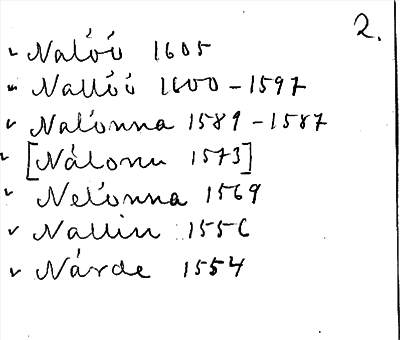 2.
✓ Nalóó 1605
✓ Nallóó 1600-1597
✓ Nalónna 1589-1587
✓ [Nálonu 1573]
✓ Nelónna 1569
✓ Nallin 1556
✓ Nárde 1554